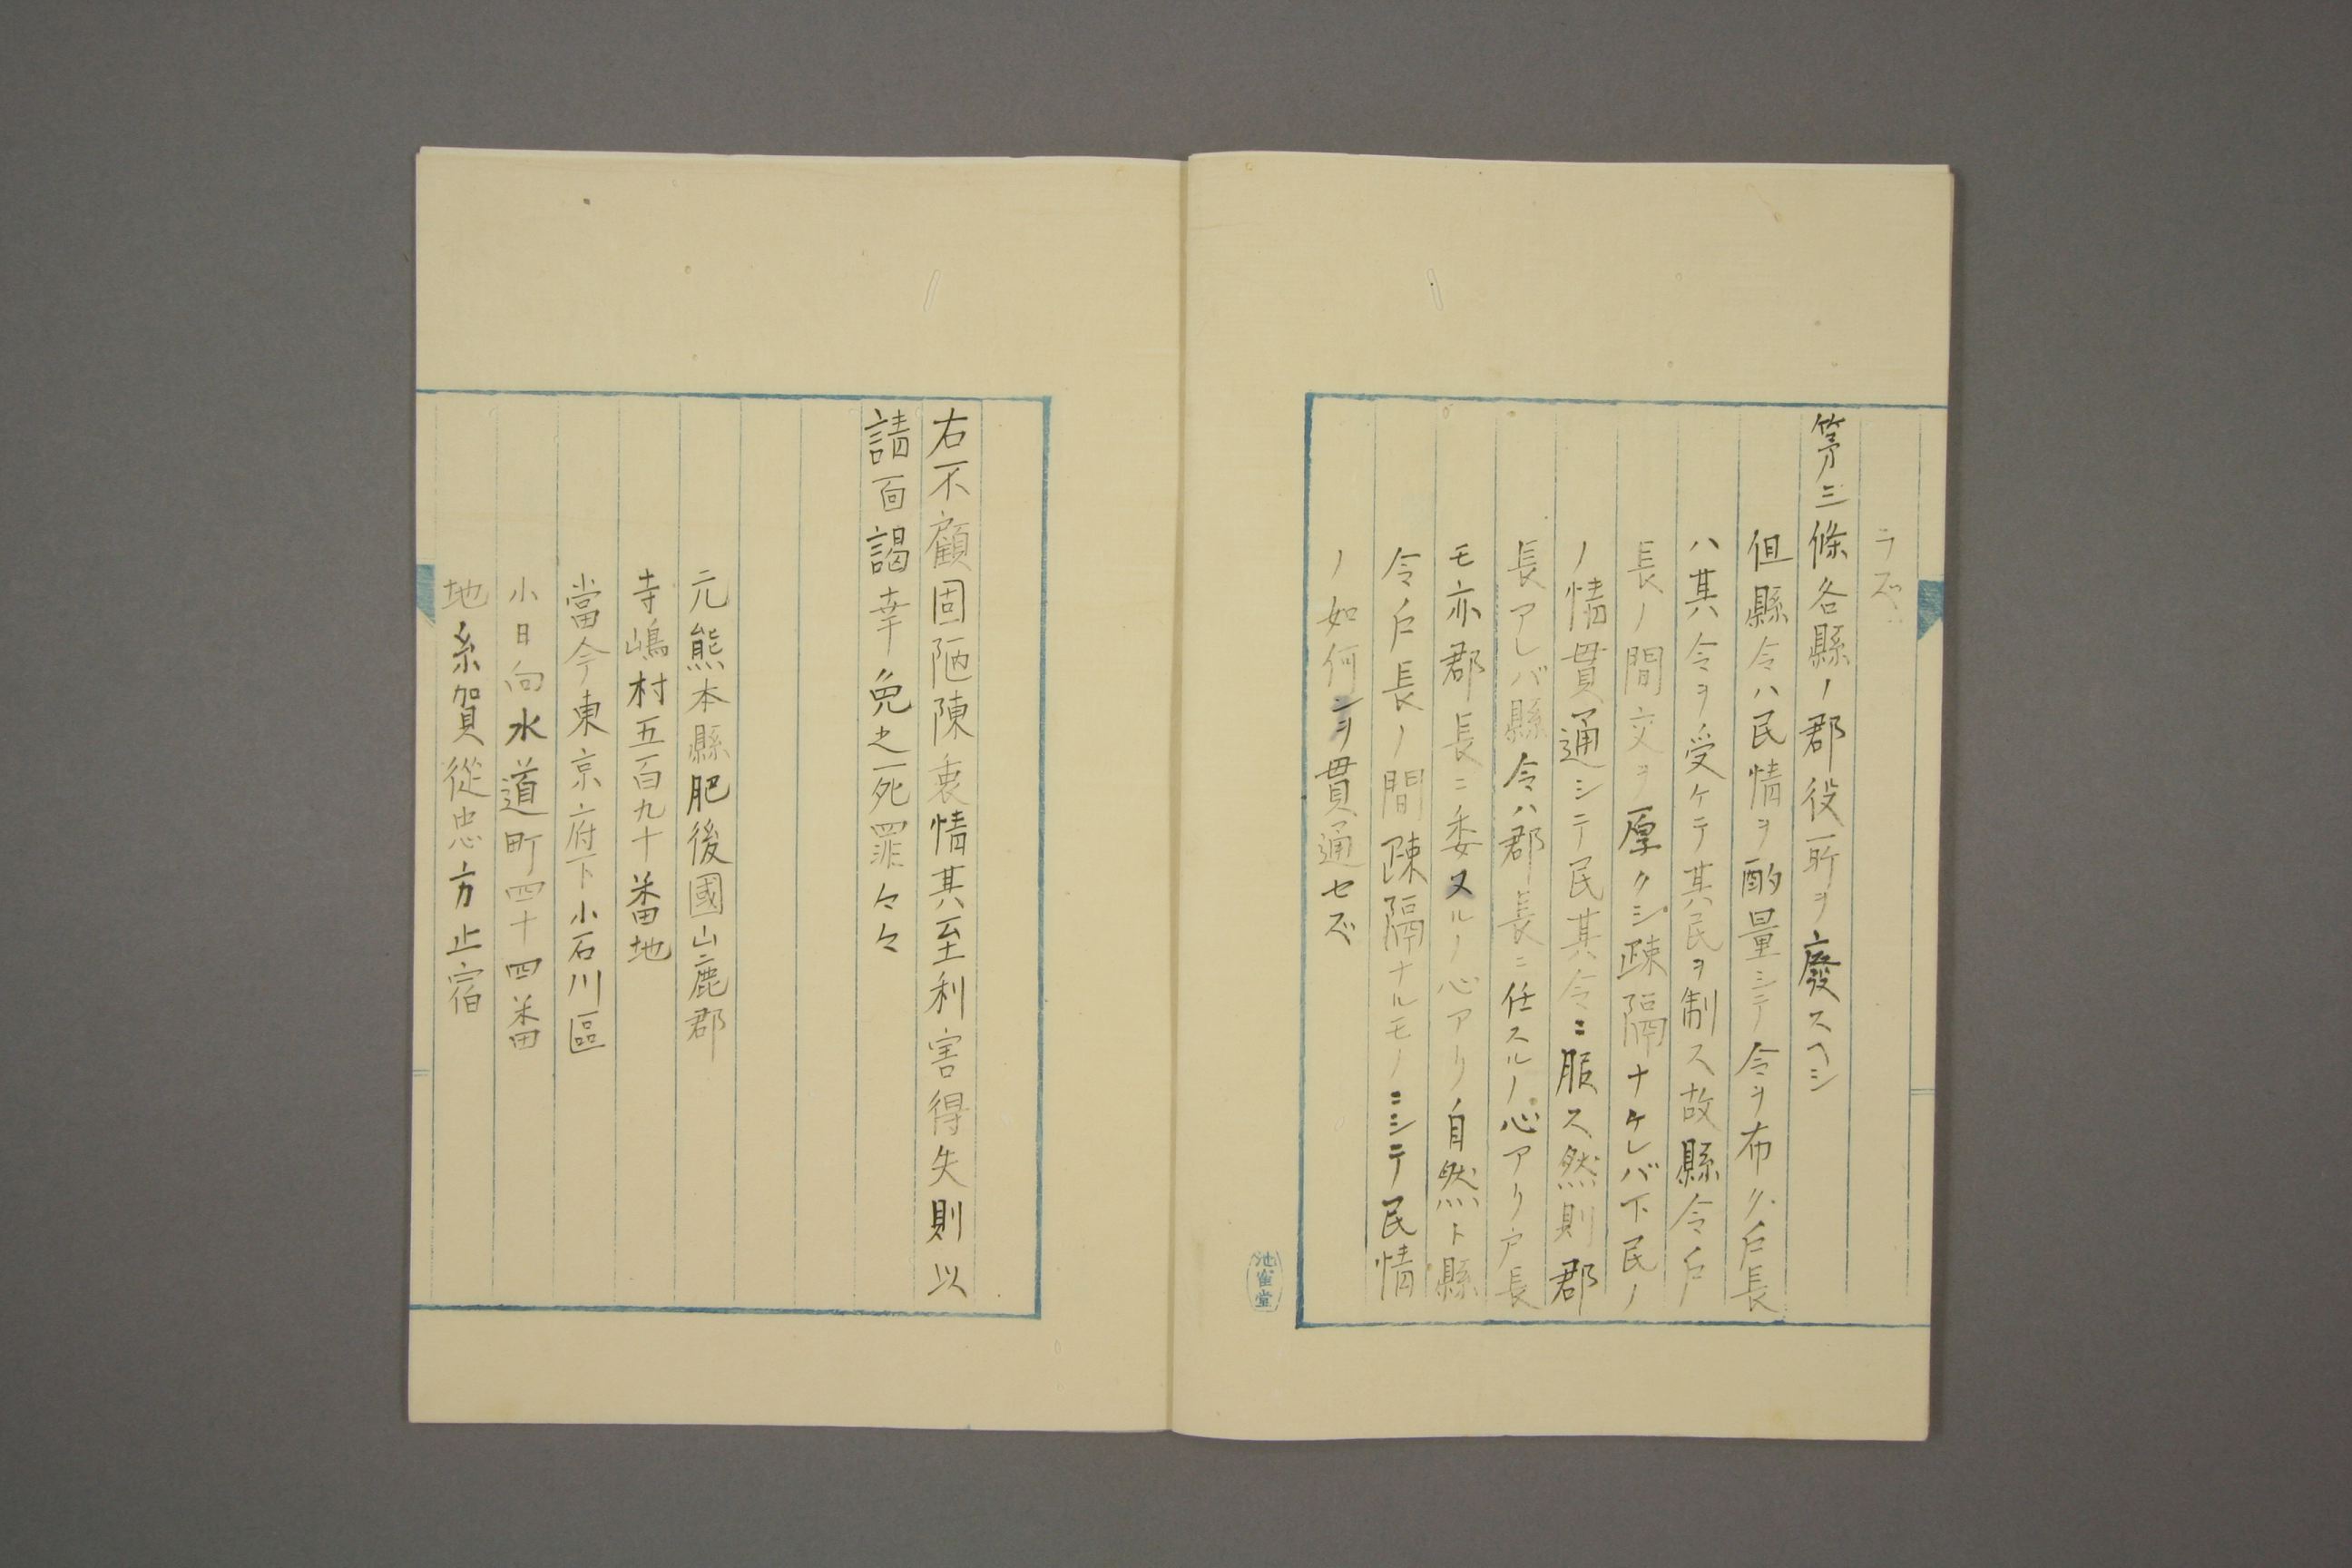 ラズ
第三條各縣ノ郡役所ヲ廢スヘシ
但縣令ハ民情ヲ酌量シテ令ヲ布ク戶長
ハ其令ヲ受ケテ其民ヲ制ス故縣令戶
長ノ間交ヲ厚クシ疎隔ナケレバ下民ノ
ノ情貫通シテ民其令ニ服ス然則郡
長アレバ縣令ハ郡長ニ任スルノ心アリ戶長
モ亦郡長ニ委ヌルノ心アリ自然ト縣
令戶長ノ間疎隔ナルモノニシテ民情
ノ如何ヲ貫通セズ
池雀堂
右不顧固陋陳衷情其至利害得失則以
請面謁幸免之死罪々々
元熊本縣肥後國山鹿郡
寺嶋村五百九十番地
當今東京府下小石川區
小日向水道町四十四番
地糸賀從忠方止宿